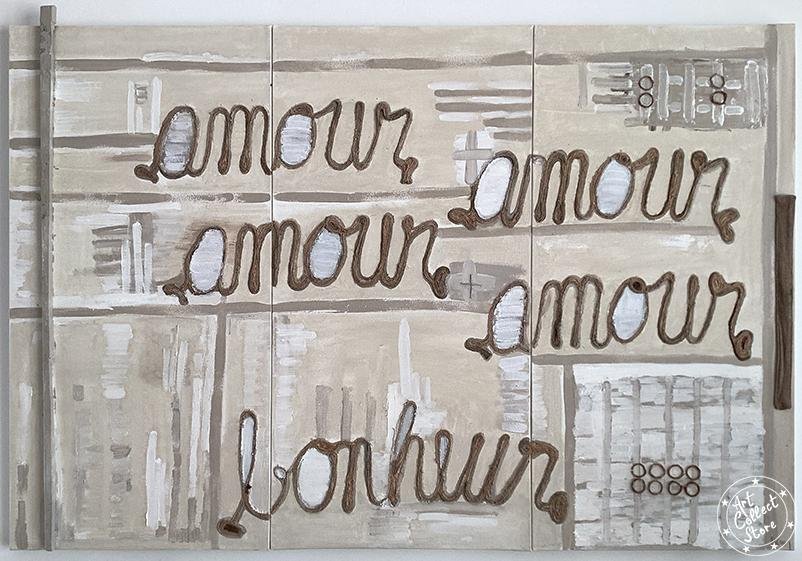 amour
amour
amour
amour
bonheur
Art
Collect
Store